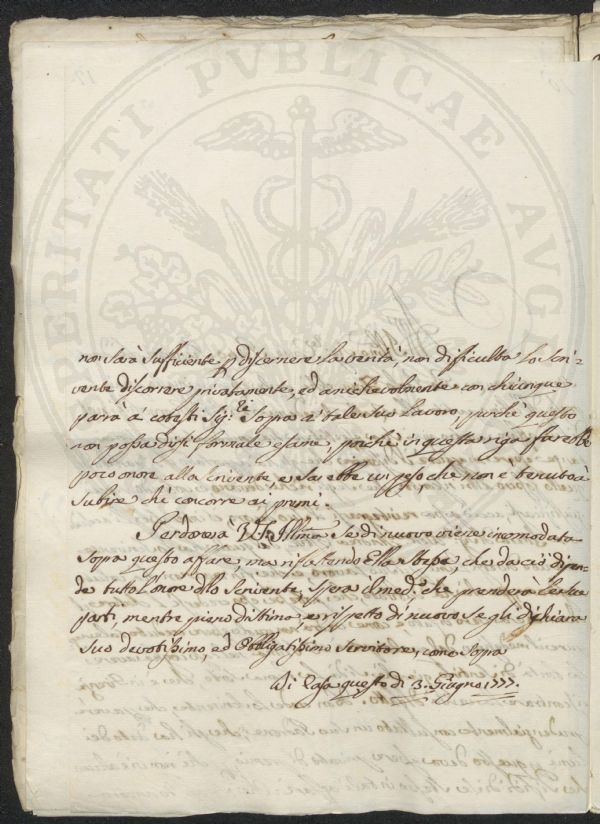 PERITATI PVBLICAE AVGE
non sarà sufficiente p discernere la verità, non difficulta lo Scri=
vente discorrere privatamente, ed amichevolmente con chiunque
parrà a' cotesti Sig:ri Sopra a' tale suo Lavoro, purchè questo
non possa dirsi formale esame, poichè in questa riga farebbe
poco onore allo Scrivente, e sarebbe un peso che non è tenuto a
subire chi concorre ai premi.
Perdonerà V.S. Illma se di nuovo viene incomodata
sopra questo affare, ma riflettendo Ella stessa, che da ciò dipen=
de tutto l'onore dllo Scrivente, spera il med:o che prenderà le sue
parti, mentre pieno di stima, e rispetto di nuovo se gli dichiara
Suo devotissimo, ed Obbligatissimo Servitore, come sopra
Di Casa questo dì 3. Giugno 1777.